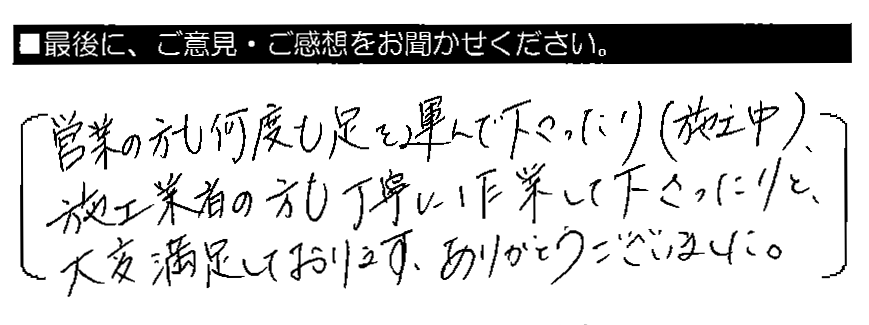 ■最後に、ご意見・ご感想をお聞かせください。
営業の方も何度も足を運んで下さったり(施工中)、
施工業者の方も丁寧に作業して下さったりと、
大変満足しております、ありがとうございました。